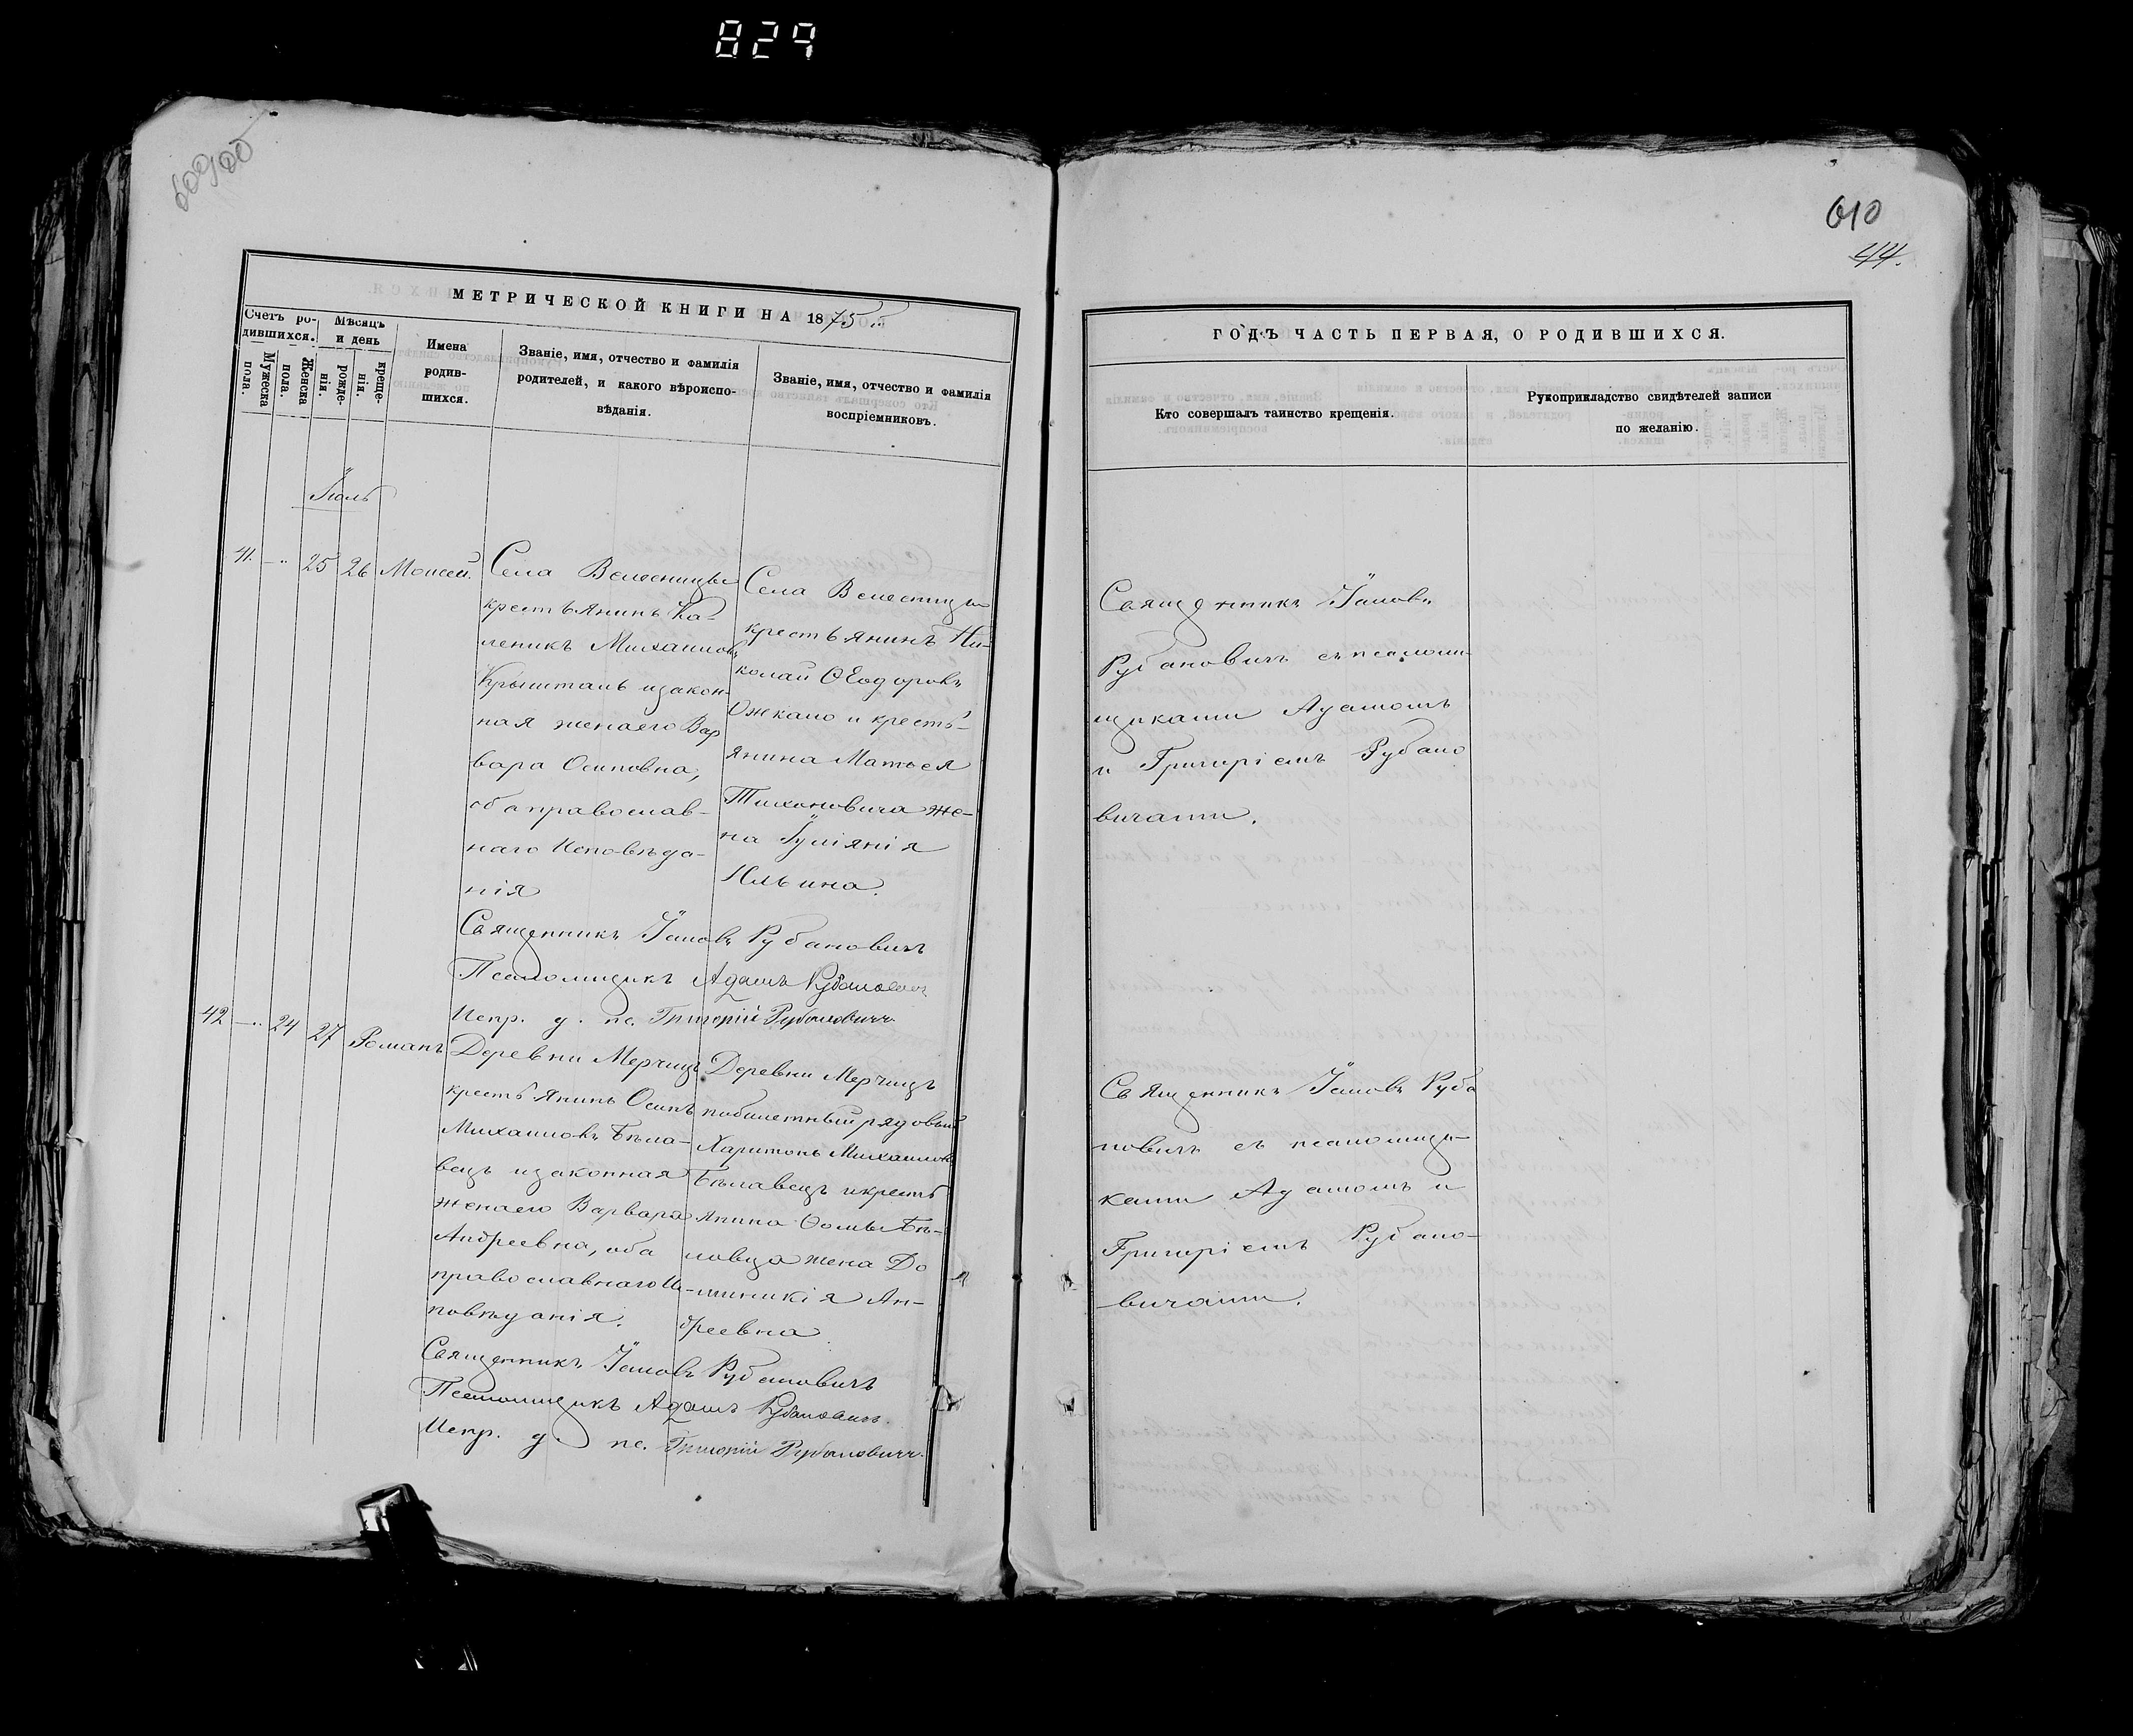 829
610
44.
МЕТРИЧЕСКОЙ КНИГИ НА 1875
Счетъ родившихся.
Мужеска пола.
Женска пола.
Мѣсяцъ и день
рожденія.
крещенія.
Имена родившихся.
Званіе, имя, отчество и фамилія
родителей, и какого вѣроиспо-
вѣданія.
Званіе, имя, отчество и фамилія
воспріемниковъ.
Іюль
41. — 25 26 Моисей.
Села Велесницы
крестьянинъ Ка-
леникъ Михаиловъ
Крышталь и закон-
ная жена его Вар
вара Осиповна,
оба православ-
наго исповѣда-
нія
Села Велесницы
крестьянинъ Ни-
колай Ѳеодоровъ
Ожкало и кресть-
янина Матвея
Тихоновича же-
на Іуліянія
Ильина.
Священникъ Іаковъ Рубановичъ
Псаломщикъ Адамъ Рубановичъ
Испр. д. пс. Григорій Рубановичъ
42 — 24 27 Романъ
Деревни Мерчицъ
крестьянинъ Осипъ
Михаиловъ Бѣла-
вецъ и законная
жена его Варвара
Андреевна, оба
православнаго ис-
повѣданія.
Деревни Мерчицъ
побилетный рядовый
Харитонъ Михаиловъ
Бѣлавецъ и кресть
янина Ѳомы Бѣ-
ловца жена До
миникія Ан-
дреевна
Священникъ Іаковъ Рубановичъ
Псаломщикъ Адамъ Рубановичъ.
Испр. д. пс. Григорій Рубановичъ.
ГОДЪ ЧАСТЬ ПЕРВАЯ, О РОДИВШИХСЯ.
Кто совершалъ таинство крещенія.
Рукоприкладство свидѣтелей записи
по желанію.
Священникъ Іаковъ
Рубановичъ съ псалом-
щиками Адамомъ
и Григоріемъ Рубано
вичами.
Священникъ Іаковъ Руба
новичъ съ псаломщи-
ками Адамомъ и
Григоріемъ Рубано-
вичами.